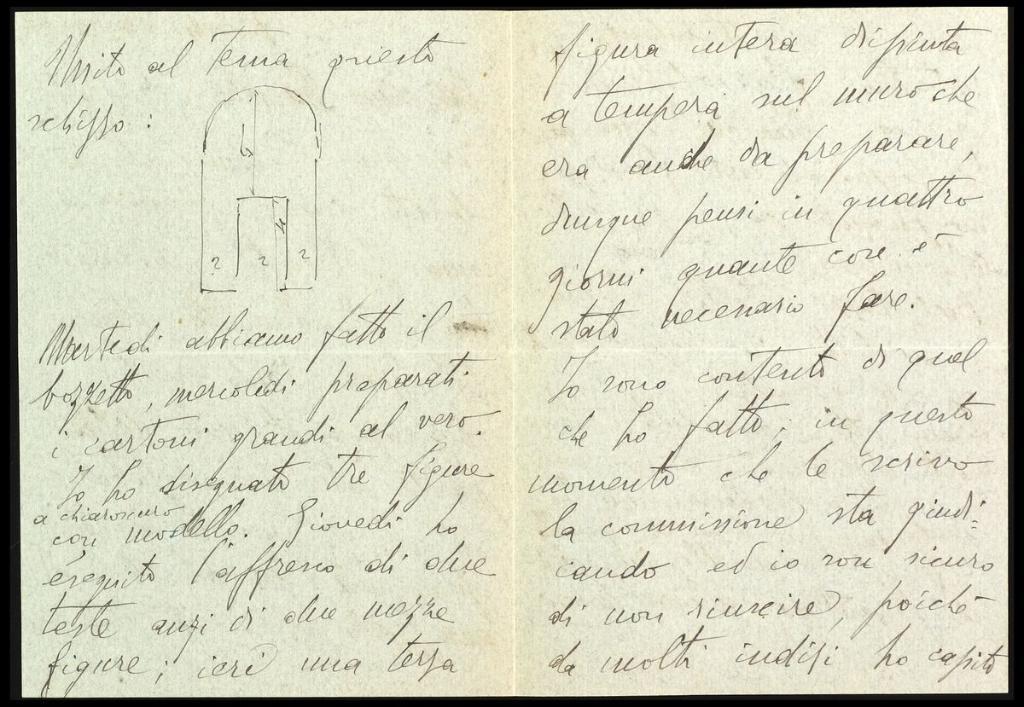 Unito al tema questo
schizzo :
6
4
2 2 2
Martedì abbiamo fatto il
bozzetto, mercoledì preparati
i cartoni grandi al vero.
Io ho disegnato tre figure
a chiaroscuro
con modello. Giovedì ho
eseguito l'affresco di due
teste anzi di due mezze
figure; ieri una terza
figura intera dipinta
a tempera sul muro che
era anche da preparare,
dunque pensi in quattro
giorni quante cose è
stato necessario fare.
Io sono contento di quel
che ho fatto; in questo
momento che le scrivo
la commissione sta giudi=
cando ed io son sicuro
di non riuscire, poichè
da molti indizi ho capito